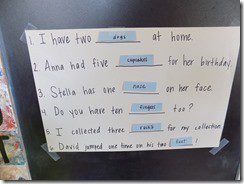 1. I have two dogs at home.
2. Anna had five cupcakes for her birthday.
3. Stella has one nose on her face.
4. Do you have ten fingers too?
5. I collected three rocks for my collection.
6. David jumped one time on his two feet!